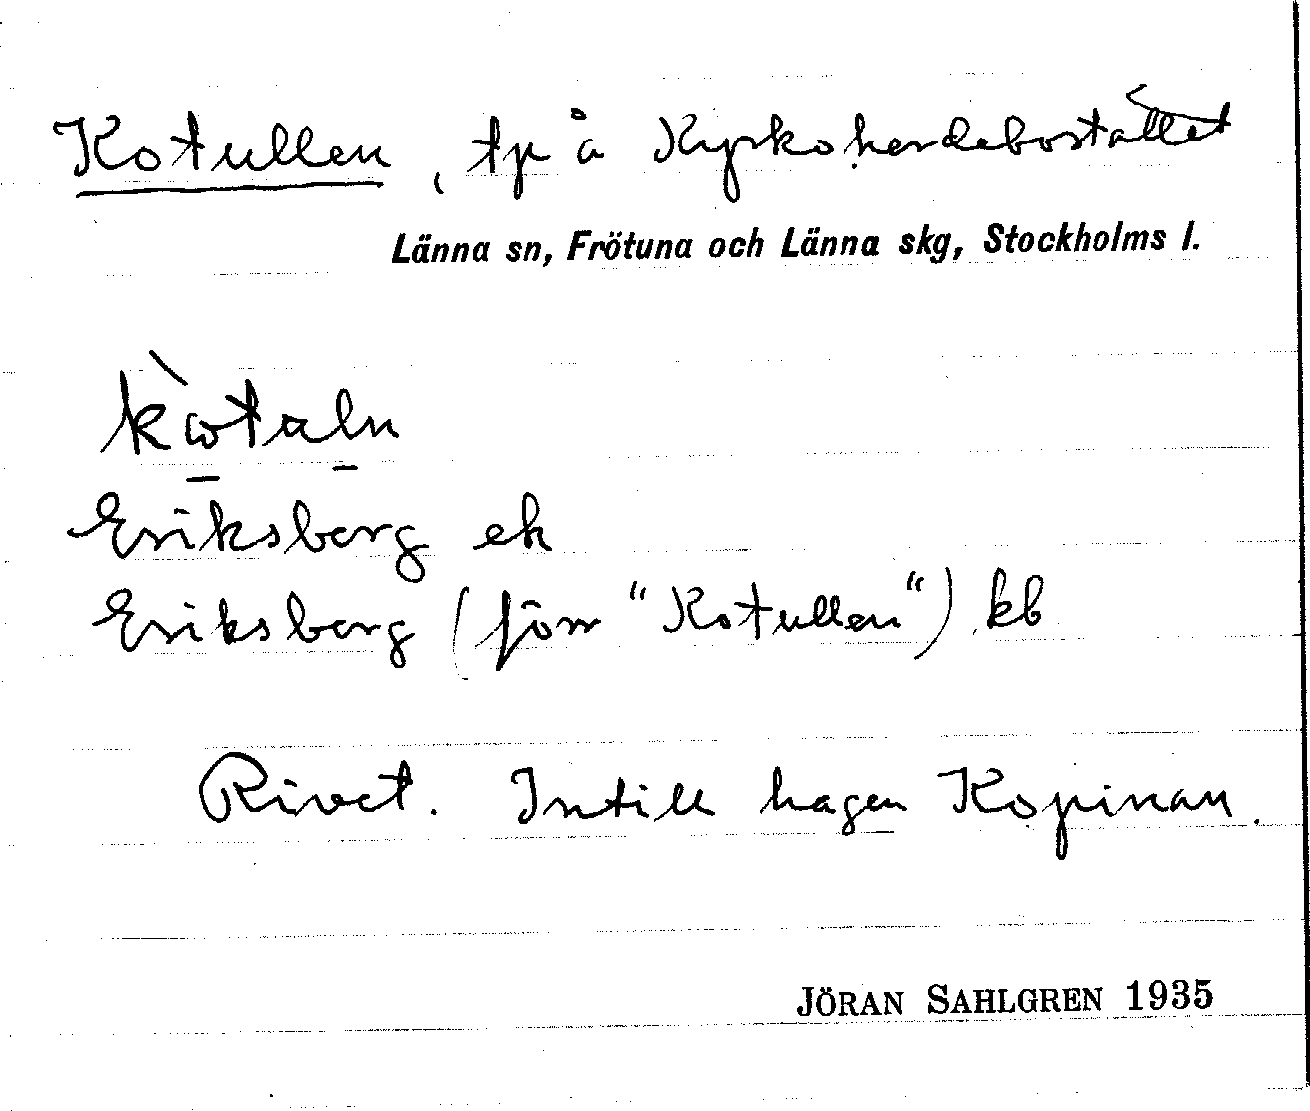 Kotullen, tp å Kyrkoherdebostället
Länna sn, Frötuna och Länna skg, Stockholms l.
kὼtaln
Eriksberg ek
Eriksberg (förr "Kotullen") kb
Rivet. Intill hagen Kopinan.
JÖRAN SAHLGREN 1935